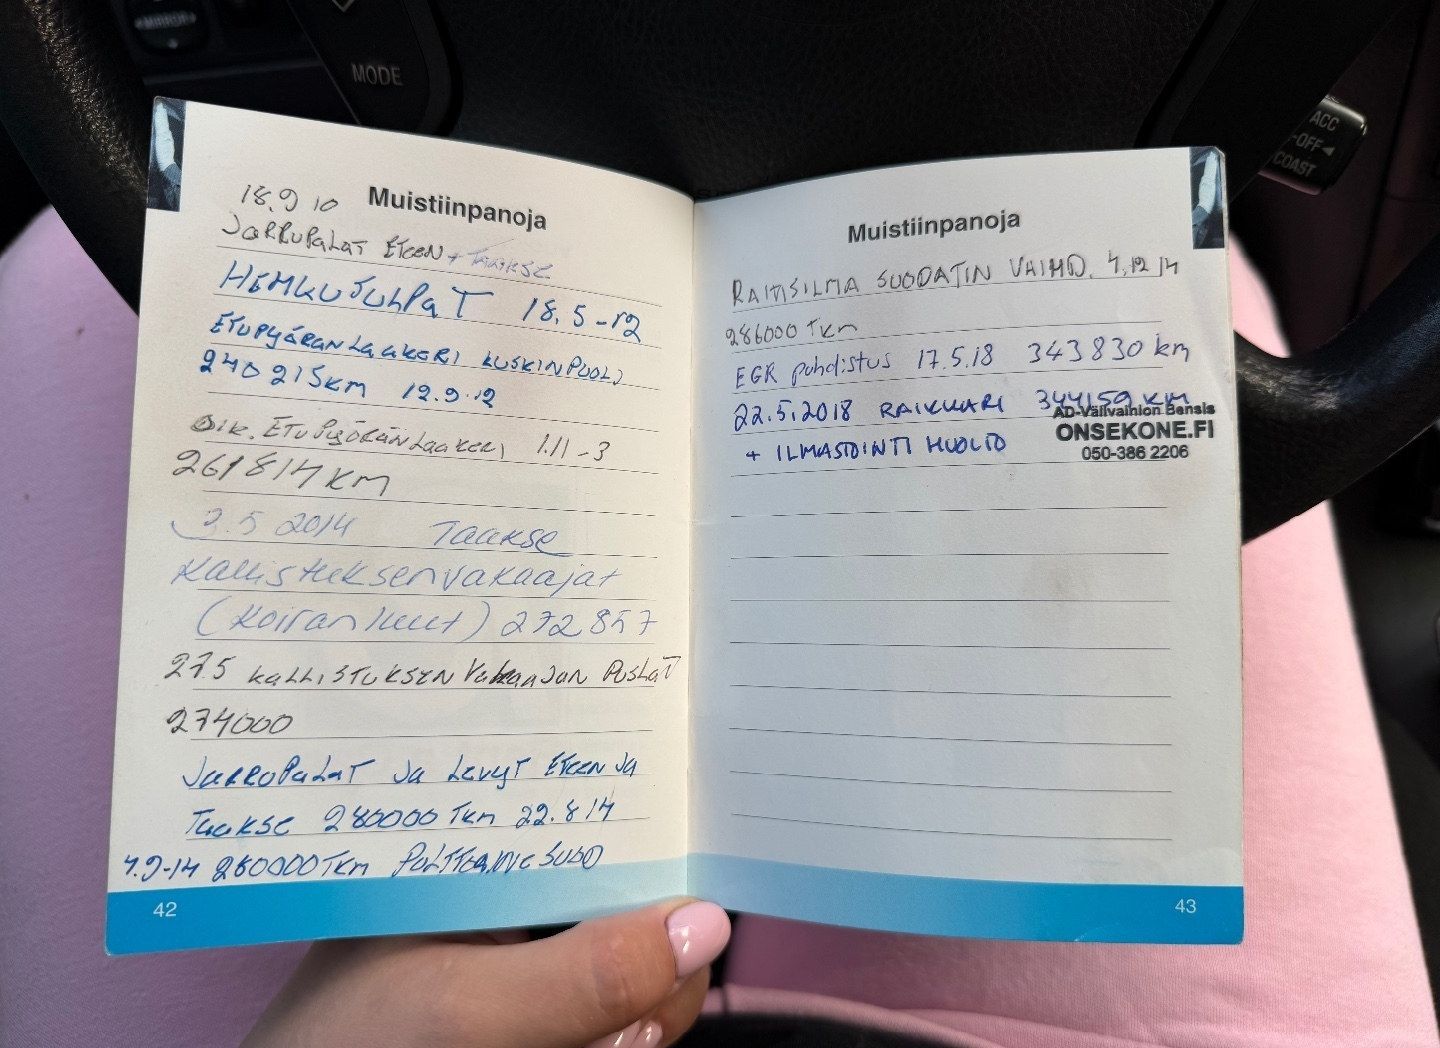 MIRROR
MODE
ACC
-OFF◄
COAST
18.9 10
Muistiinpanoja
JARRUPALAT ETEEN + TAAKSE
HEHKUTULPAT 18.5-12
ETUPYÖRÄNLAAKERI KUSKINPUOLI
240 215 KM 12.9.12
OIK. ETUPYÖRÄNLAAKERI 1.11-3
261 814 KM
2.5 2014 TAAKSE
Kallistuksenvakaajat
(Koiranluut) 272 857
27.5 KALLISTUKSEN Vakaajan PUSLAT
274000
JARRUPALAT JA LEVYT ETEEN JA
TAAKSE 280000 TKM 22.8 14
4.9-14 280000 TKM POLTTOAINE SUOD
42
Muistiinpanoja
RAITISILMA SUODATIN VAIHD. 4.12 14
286000 TKM
EGR puhdistus 17.5.18 343830 km
22.5.2018 RAIKKARI 344159 KM
AD-Välivainion Bensis
+ ILMASTOINTI HUOLTO
ONSEKONE.FI
050-386 2206
43